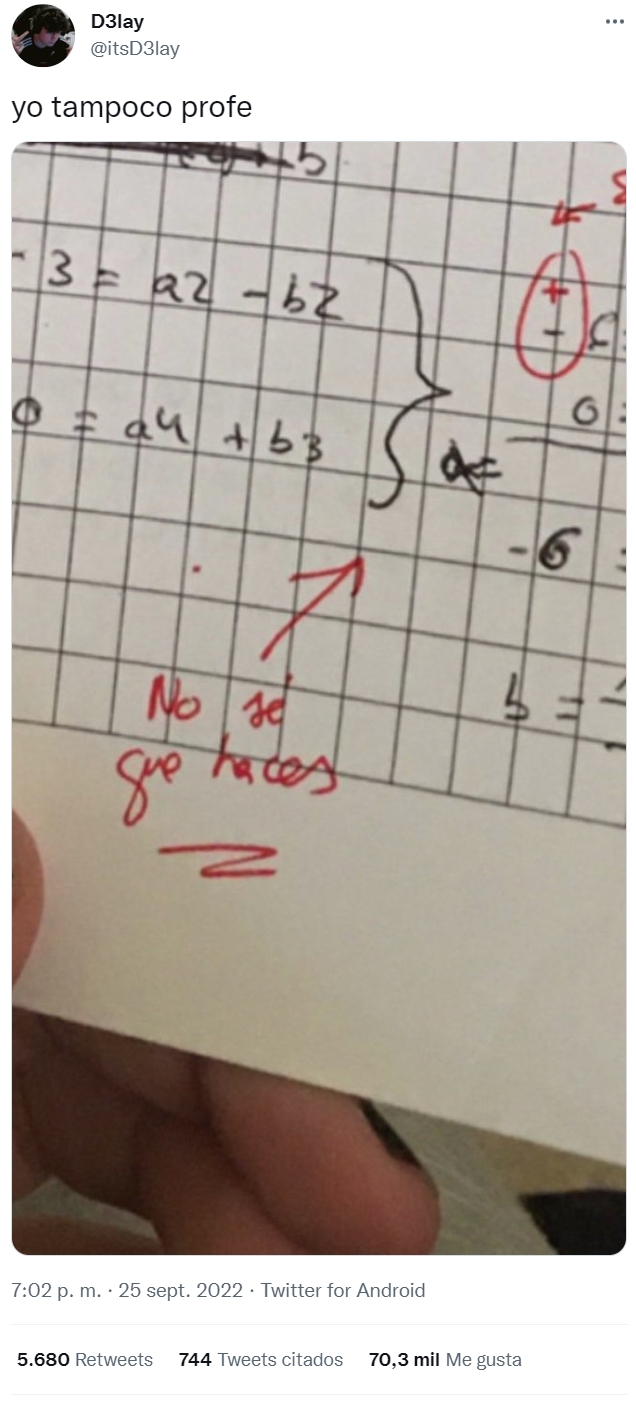 D3lay
@itsD3lay
yo tampoco profe
b
- 3 = a2 - b2
+
-
0 = a4 + b3
0 =
-6 =
No sé
que haces
b =
7:02 p. m. · 25 sept. 2022 · Twitter for Android
5.680 Retweets 744 Tweets citados 70,3 mil Me gusta